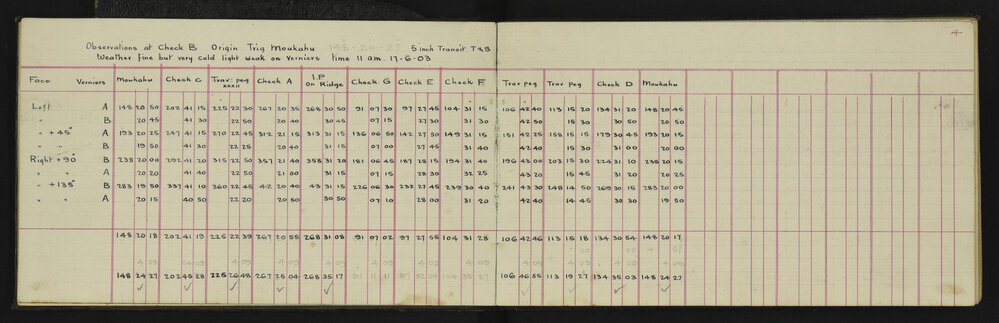 4
Observations at Check B. Origin Trig Moukahu 148-24-27 5 inch Transit T&S
Weather fine but very cold light weak on verniers time 11 am. 17-6-03
Face Verniers Moukahu Check C Trav: peg XXXII Check A I.P On Ridge Check G Check E Check F Trav peg Trav peg Check D Moukahu
Left A 148 20 50 202 41 15 225 22 30 267 20 35 268 30 50 91 07 30 97 27 45 104 31 15 106 42 40 113 15 20 134 31 20 148 20 45
" B 20 45 41 30 22 50 20 40 30 45 07 15 27 30 31 30 42 50 15 30 30 50 20 50
" +45° A 193 20 25 247 41 15 270 22 45 312 21 15 313 31 15 136 06 50 142 27 50 149 31 15 151 42 25 158 15 15 179 30 45 193 20 15
" " B 19 50 41 30 22 25 20 40 31 15 07 00 27 45 31 40 42 40 15 30 31 00 20 00
Right +90° B 238 20 00 292 41 20 315 22 50 357 21 40 358 31 20 181 06 45 187 28 15 194 31 40 196 43 00 203 15 30 224 31 10 238 20 15
" A 20 20 41 40 22 50 21 00 31 15 07 15 28 30 32 25 43 20 15 45 31 20 20 25
" +135° B 283 19 50 337 41 10 360 22 45 42 20 40 43 31 15 226 06 30 232 27 45 239 30 40 241 43 30 248 14 50 269 30 15 283 20 00
" " A 20 15 40 50 22 20 20 50 30 50 07 10 28 00 31 20 42 40 14 45 30 30 19 50
148 20 18 202 41 19 225 22 39 267 20 55 268 31 08 91 07 02 97 27 55 104 31 28 106 42 46 113 15 18 134 30 54 148 20 17
4 09 4 09 4 09 4 09 4 09 4 09 4 09
148 24 27 202 45 28 225 26 48 267 25 04 268 35 17 91 11 11 97 32 04 104 35 37 106 46 55 113 19 27 134 35 03 148 24 27
✓ ✓ ✓ ✓ ✓ ✓ ✓ ✓ ✓